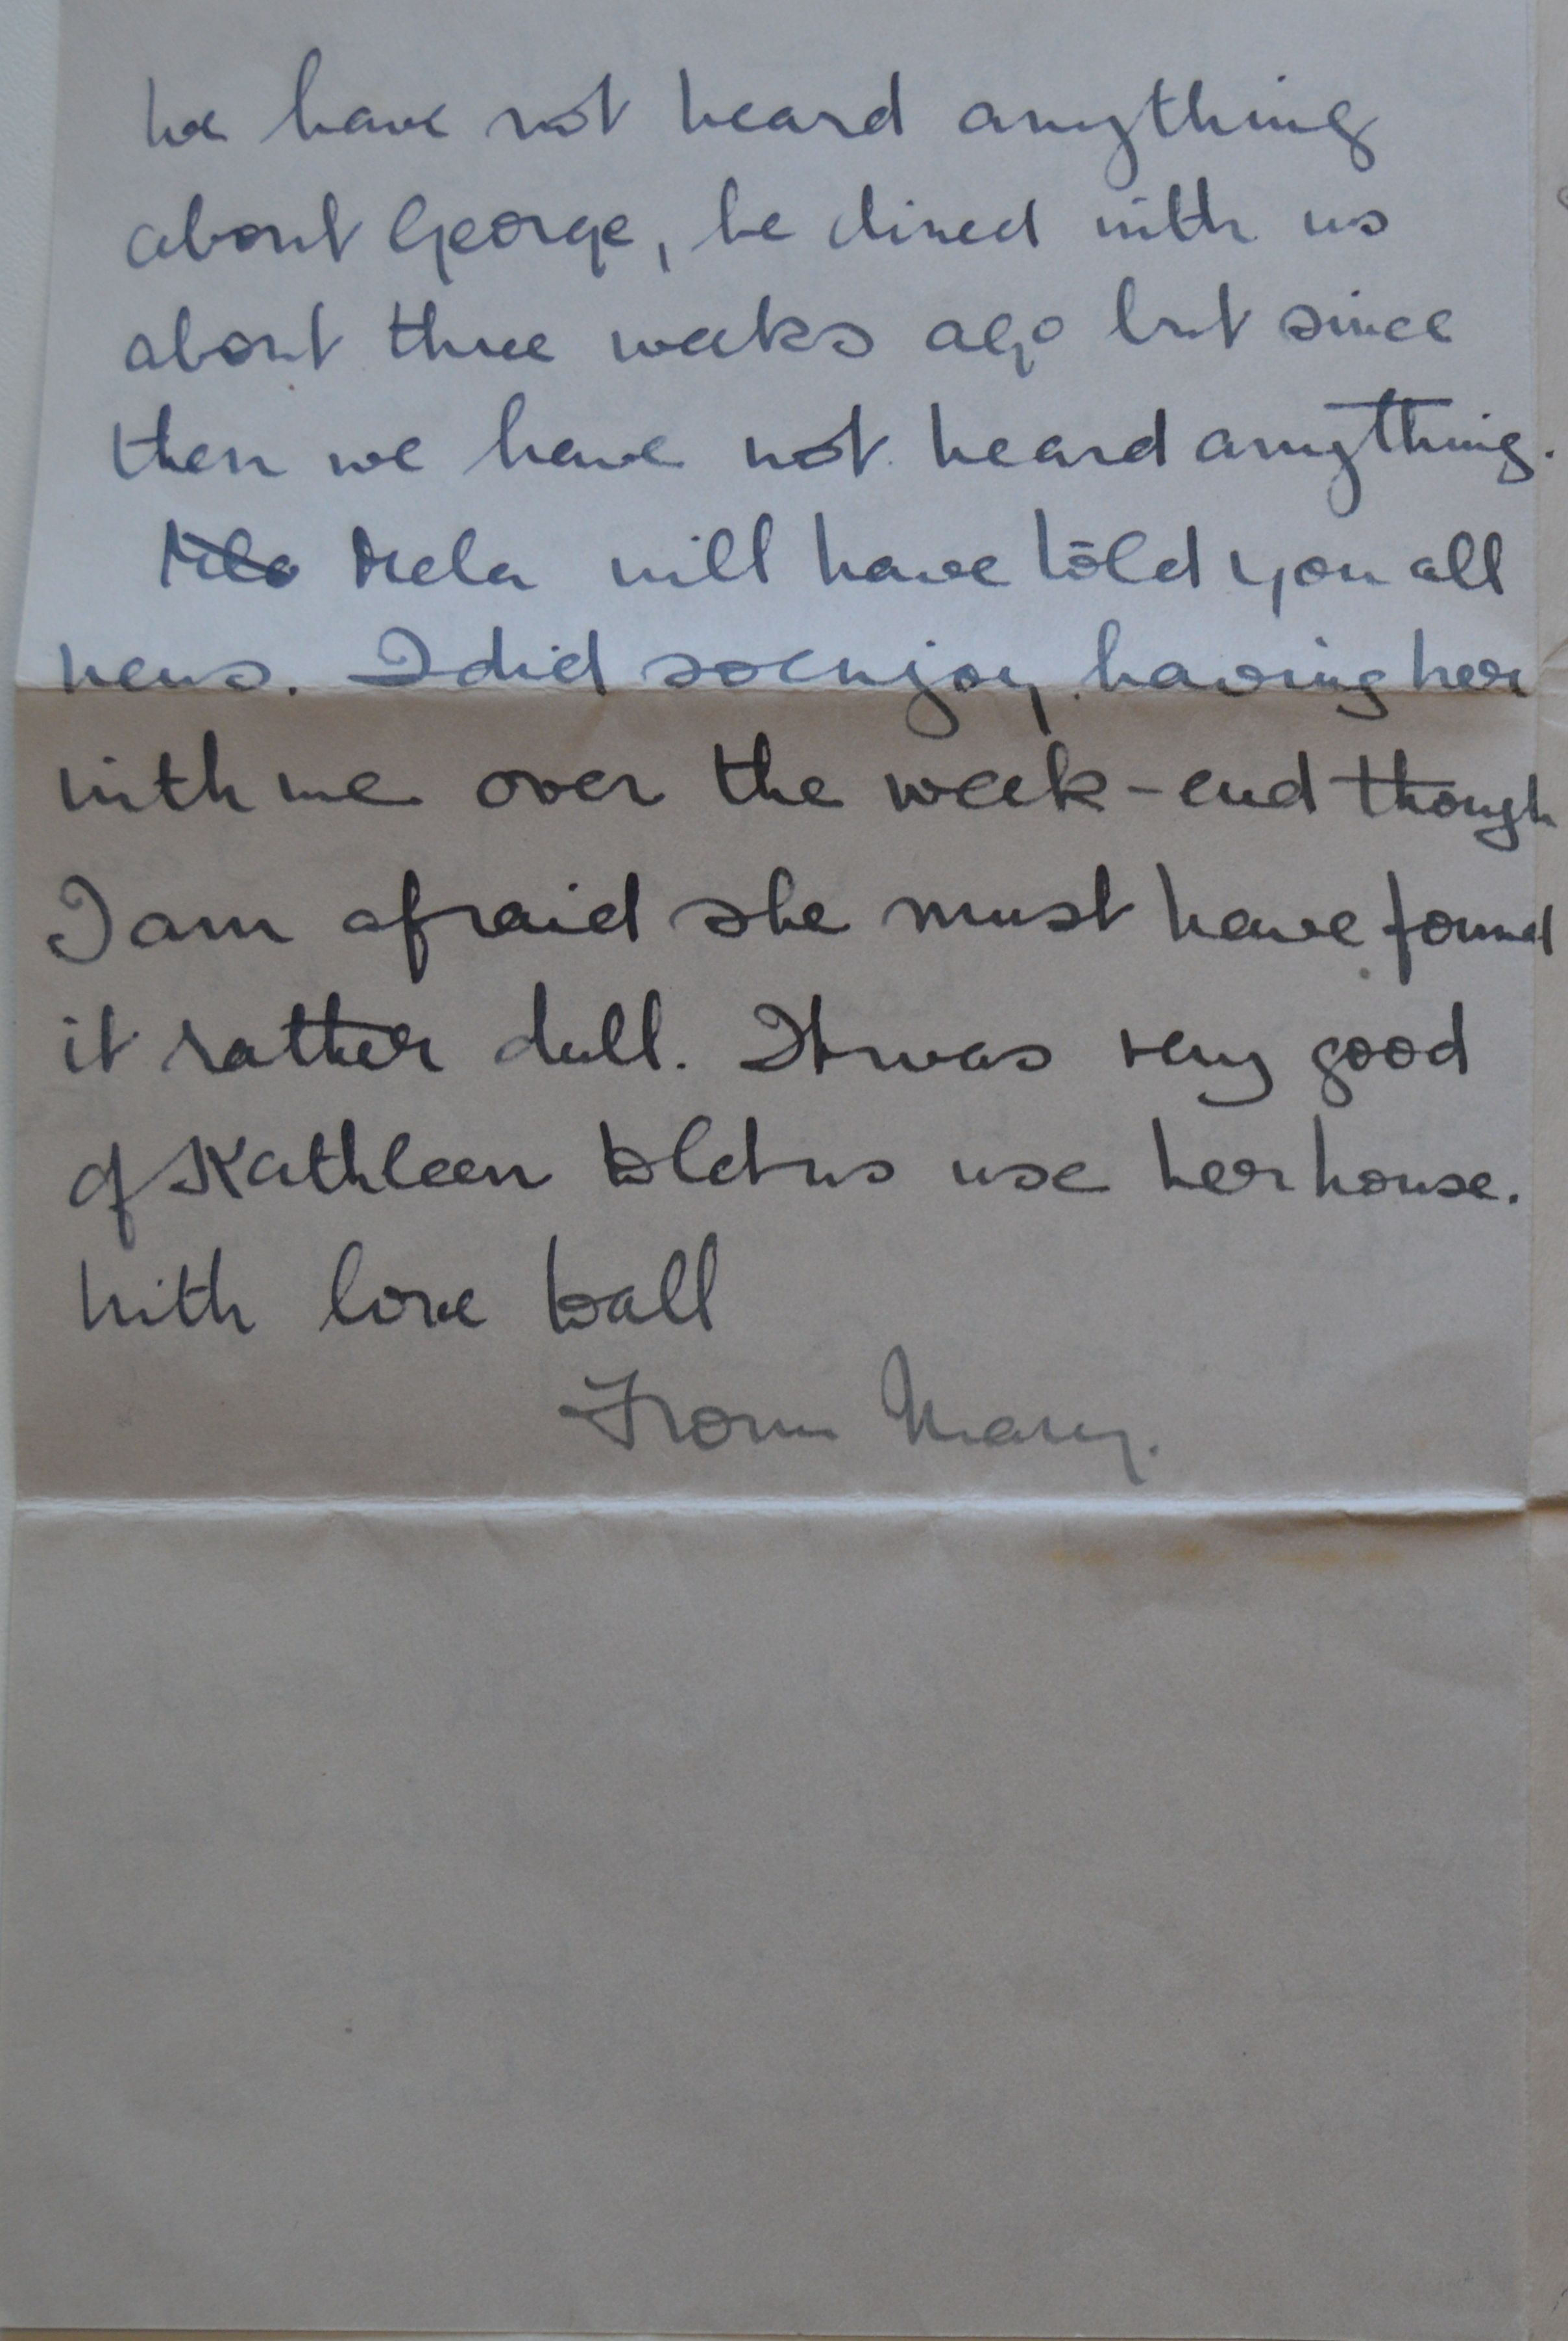 We have not heard anything
about George, he dined with us
about three weeks ago but since
then we have not heard anything.
Mela will have told you all
news. I did so enjoy having her
with me over the week-end though
I am afraid she must have found
it rather dull. It was very good
of Kathleen to let us use her house.
With love to all
From Mary.